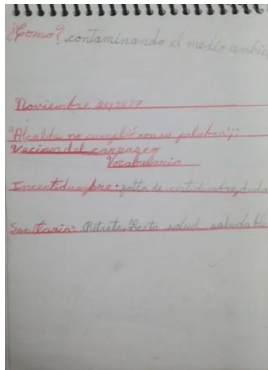 ¿Como? contaminando el medio ambie
Noviembre 20, 2019
"Alcalde no cumplió con su palabra":
Vecinos del carpaseo
Vocabulario
Incertidumbre: falta de certidumbre, duda
Sanitario: salud saludable